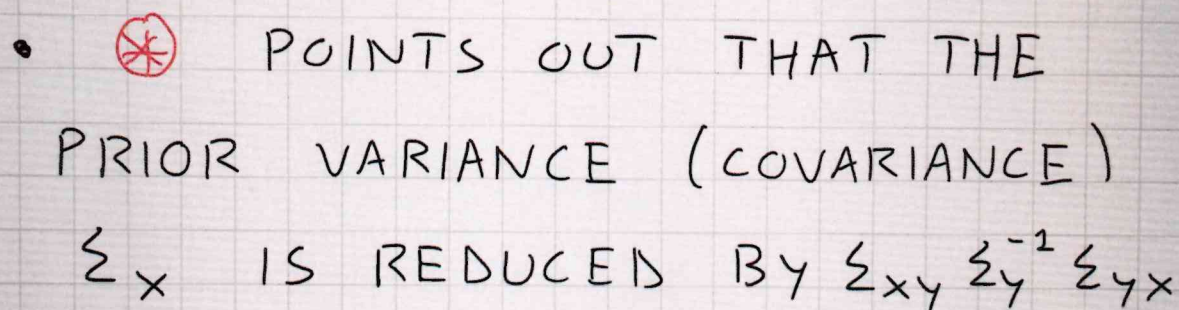 • ⊛ POINTS OUT THAT THE
PRIOR VARIANCE (COVARIANCE)
Σx IS REDUCED BY Σxy Σy⁻¹ Σyx